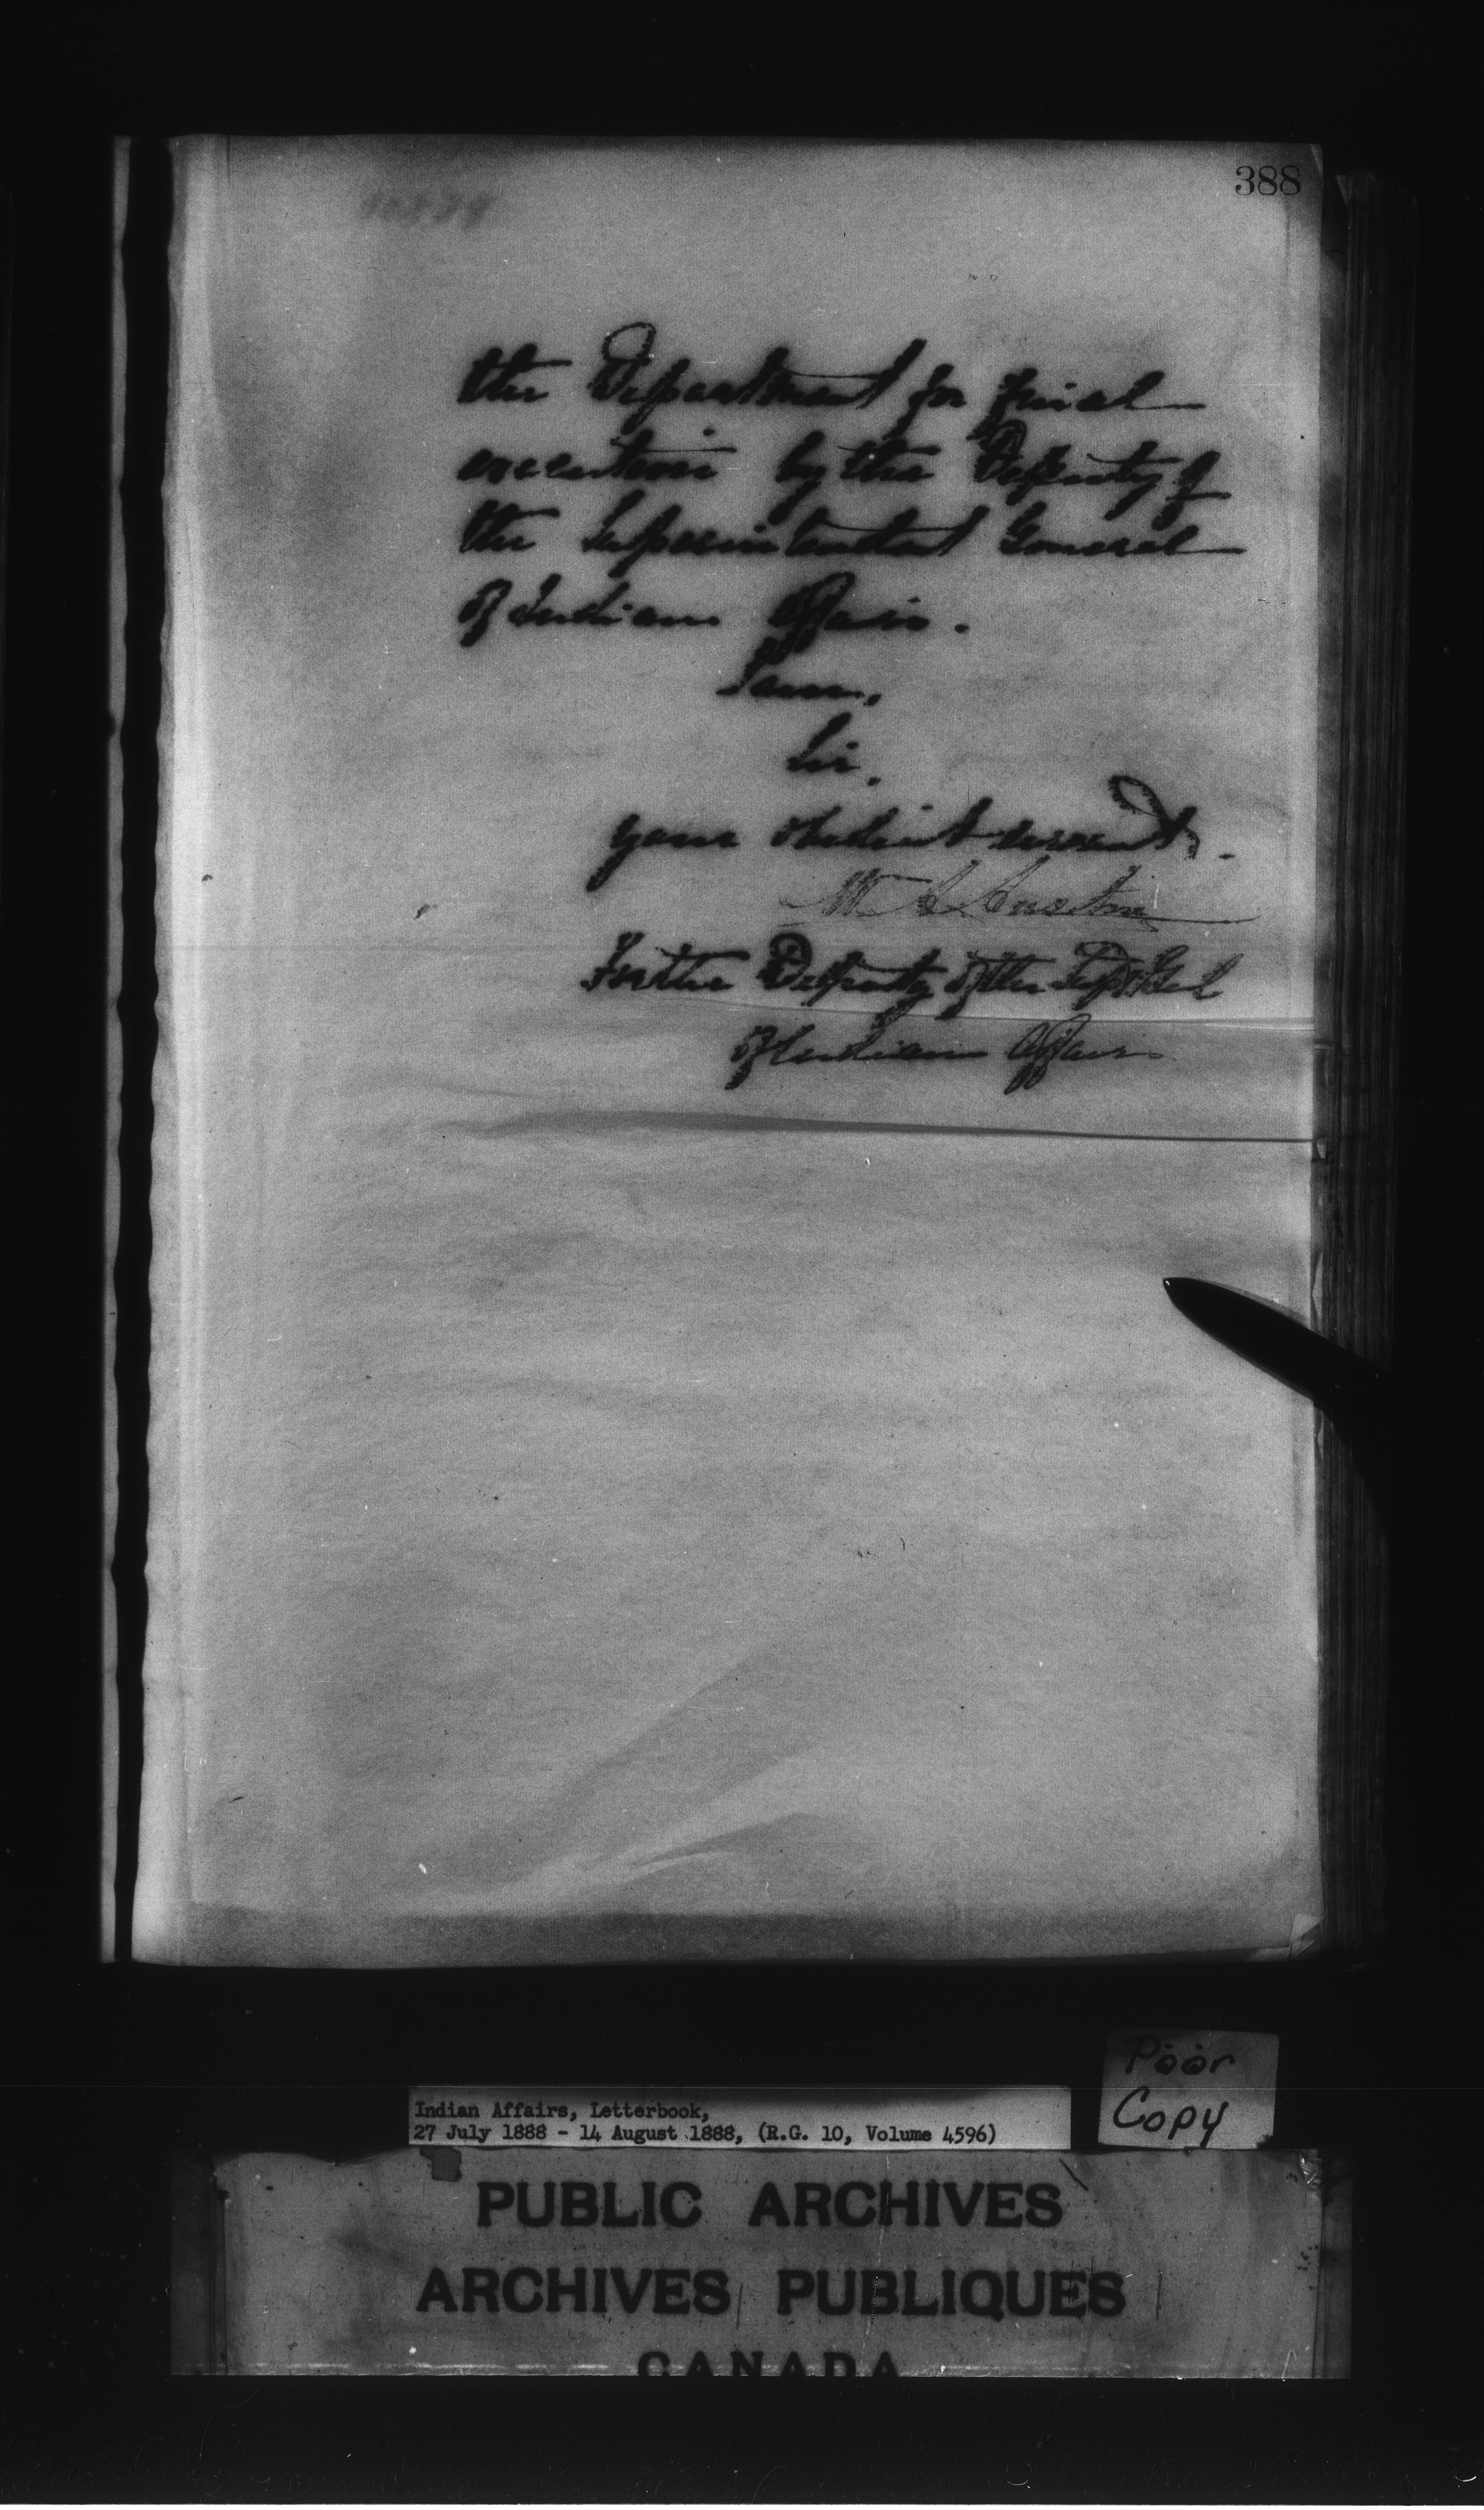 388
the Department for final
execution by the Deputy of
the Superintendent General
of Indian Affairs.
I am,
Sir,
Your obedient servant,
W A Austin
For the Deputy of the Supt Genl
of Indian Affairs
Poor
Copy
Indian Affairs, Letterbook,
27 July 1888 - 14 August 1888, (R.G. 10, Volume 4596)
PUBLIC ARCHIVES
ARCHIVES PUBLIQUES
CANADA